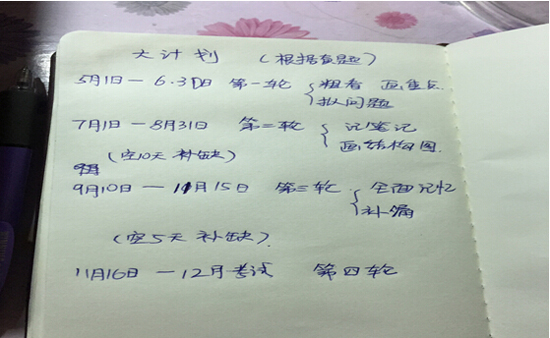 大计划 (根据真题)
5月1日 — 6.30日 第一轮 { 粗看 画重点
拟问题
7月1日 — 8月31日 第二轮 { 记笔记
画结构图
(空10天 补缺)
9月10日 — 11月15日 第三轮 { 全面记忆
补漏
(空5天 补缺)
11月16日 — 12月考试 第四轮